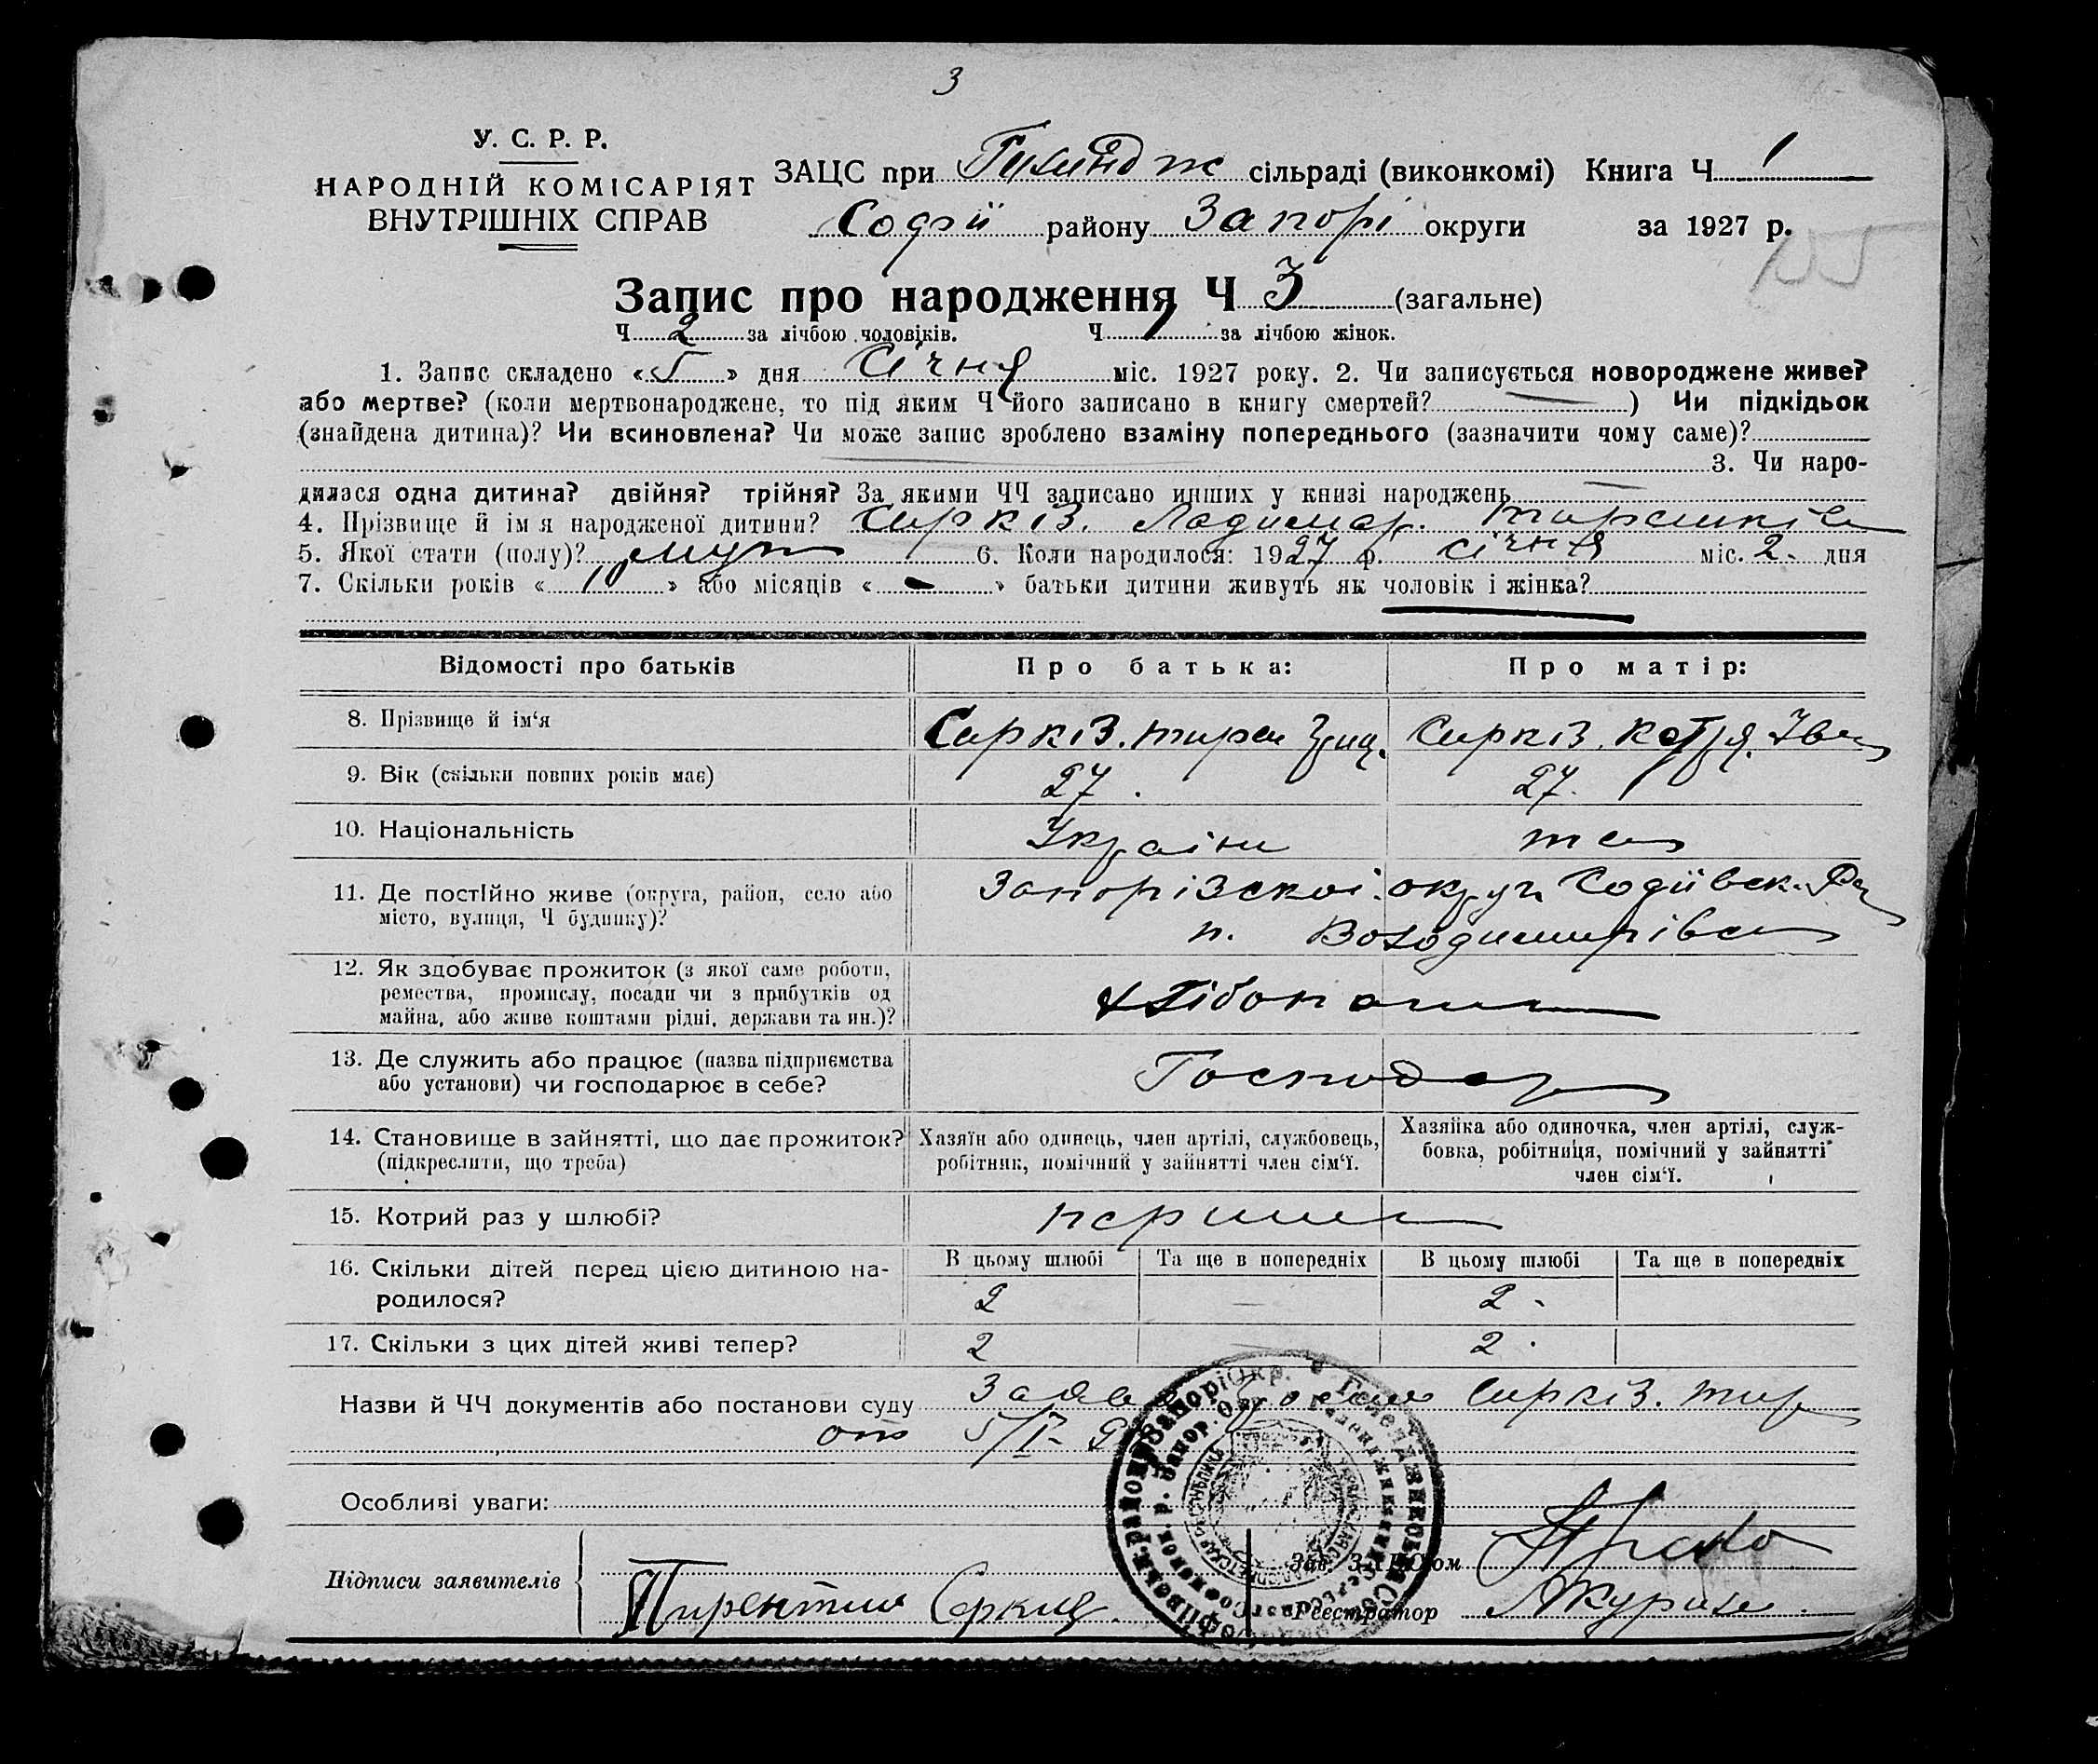 3
У. С. Р. Р.
НАРОДНІЙ КОМІСАРІЯТ
ВНУТРІШНІХ СПРАВ
ЗАЦС при сільраді (виконкомі) Книга Ч 1
Софії району Запорі округи за 1927 р.
Запис про народження Ч 3 (загальне)
Ч 2 за лічбою чоловіків. Ч 1 за лічбою жінок.
1. Запис складено «5» дня Січня міс. 1927 року. 2. Чи записується новороджене живе?
або мертве? (коли мертвонароджене, то під яким Ч його записано в книгу смертей? —) Чи підкідьок
(знайдена дитина)? Чи всиновлена? Чи може запис зроблено взаміну попереднього (зазначити чому саме)?
3. Чи наро-
дилася одна дитина? двійня? трійня? За якими ЧЧ записано инших у книзі народжень —
4. Прізвище й імя народженої дитини? Сиркіз.
5. Якої стати (полу)? муж 6. Коли народилося: 1927 р. січня міс. 2. дня
7. Скільки років «10» або місяців «-» батьки дитини живуть як чоловік і жінка?
Відомості про батьків Про батька: Про матір:
8. Прізвище й ім'я Сиркіз. Сиркіз.
9. Вік (скільки повних років має) 27. 27.
10. Національність Україн
11. Де постІйно живе (округа, район, село або Запорізскої округи Софіївск. Ра
місто, вулиця, Ч будинку)? п. Володимирівка
12. Як здобуває прожиток (з якої саме роботи,
ремества, промислу, посади чи з прибутків од
майна, або живе коштами рідні, держави та ин.)?
13. Де служить або працює (назва підприємства
або установи) чи господарює в себе? Господар
14. Становище в зайнятті, що дає прожиток? Хазяїн або одинець, член артілі, службовець, Хазяйка або одиночка, член артілі, служ-
(підкреслити, що треба) робітник, помічний у зайнятті член сім'ї. бовка, робітниця, помічний у зайнятті
член сім'ї.
15. Котрий раз у шлюбі? перший
16. Скільки дітей перед цією дитиною на- В цьому шлюбі Та ще в попередніх В цьому шлюбі Та ще в попередніх
родилося? 2 — 2 -
17. Скільки з цих дітей живі тепер? 2 2.
Назви й ЧЧ документів або постанови суду Заява Сиркіз.
от 5/I-
Особливі уваги:
Зав. ЗАЦСом
Підписи заявителів Реєстратор